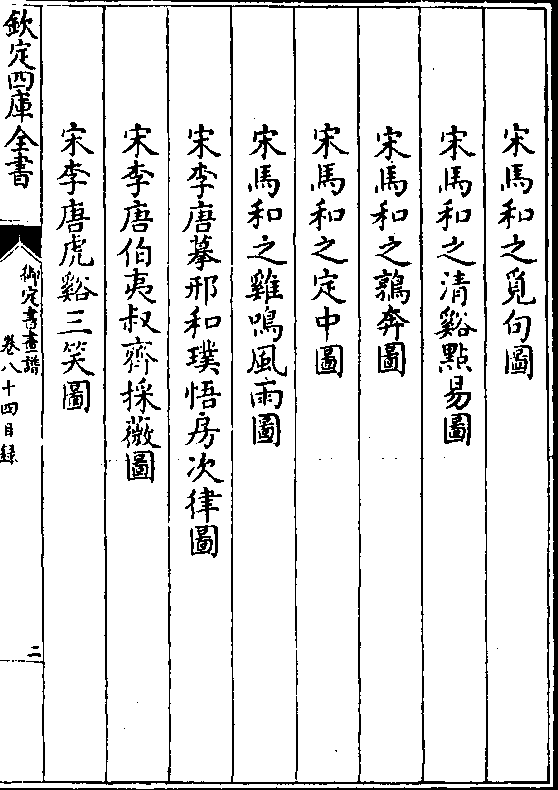 宋馬和之覓句圖
宋馬和之清谿點易圖
宋馬和之鶉奔圖
宋馬和之定中圖
宋馬和之雞鳴風雨圖
宋李唐摹邢和璞悟房次律圖
宋李唐伯夷叔齊採薇圖
宋李唐虎谿三笑圖
欽定四庫全書
御定書畫譜
卷八十四目録
二